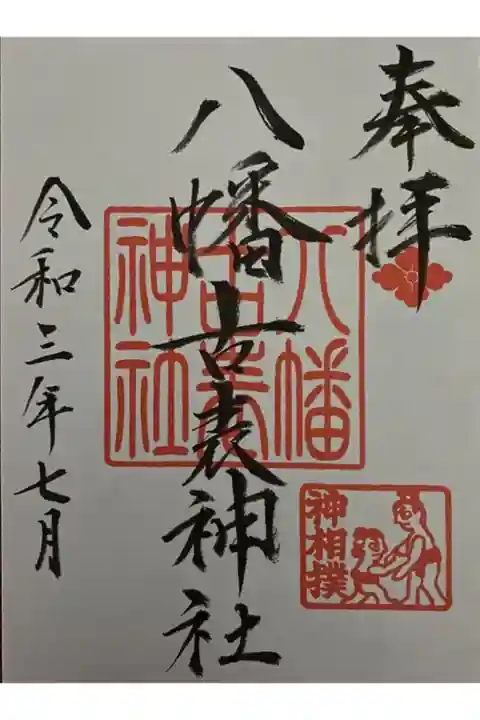 奉拝
八幡古表神社
八幡
古表
神社
神相撲
令和三年七月